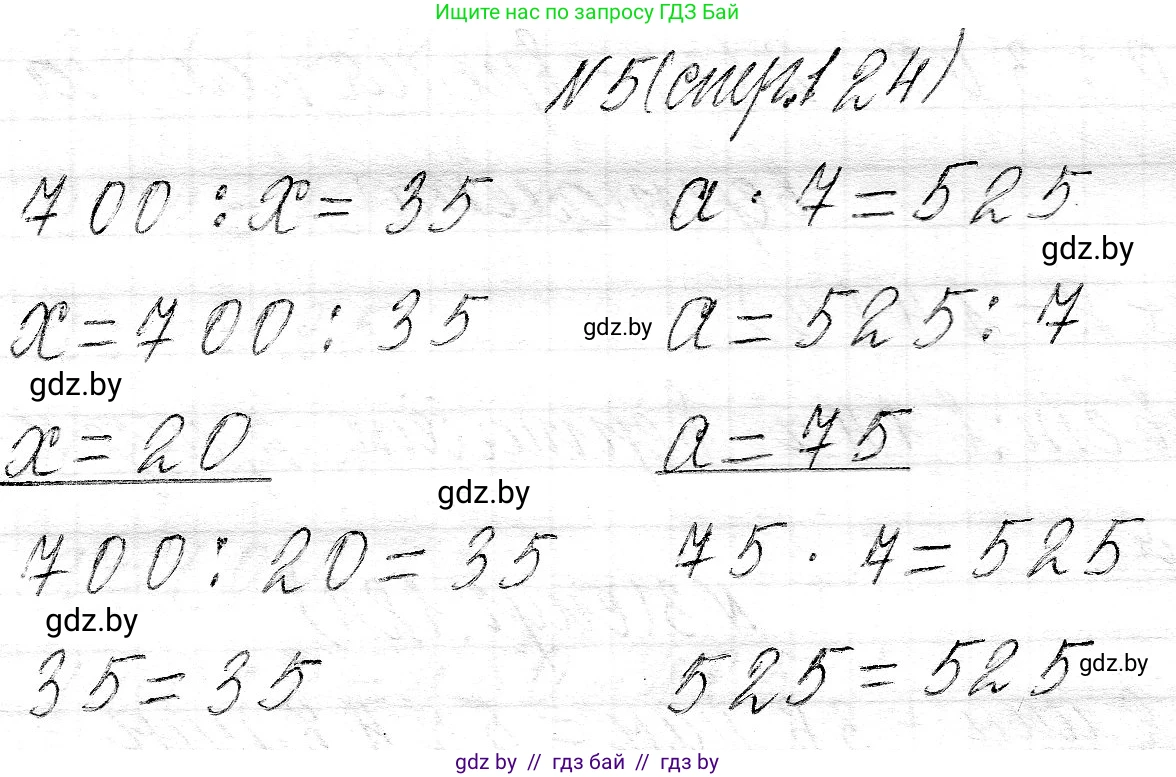 Ищите нас по запросу ГДЗ Бай
№5(стр.124)
700 : x = 35
a · 7 = 525
gdz.by
x = 700 : 35
gdz.by
a = 525 : 7
gdz.by
x = 20
a = 75
gdz.by
700 : 20 = 35
75 · 7 = 525
gdz.by
35 = 35
525 = 525
gdz.by
gdz.by // гдз бай // gdz.by